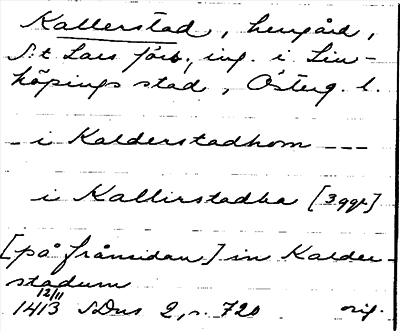 Kallerstad, herrgård,
S:t Lars förs., ing. i Lin-
köpings stad, Österg. l.
– i Kalderstadhom – – –
i Kallirstadha [3 ggr]
[på frånsidan] in Kalder-
stadum
12/11
1413 SDns 2, s. 720 orig.